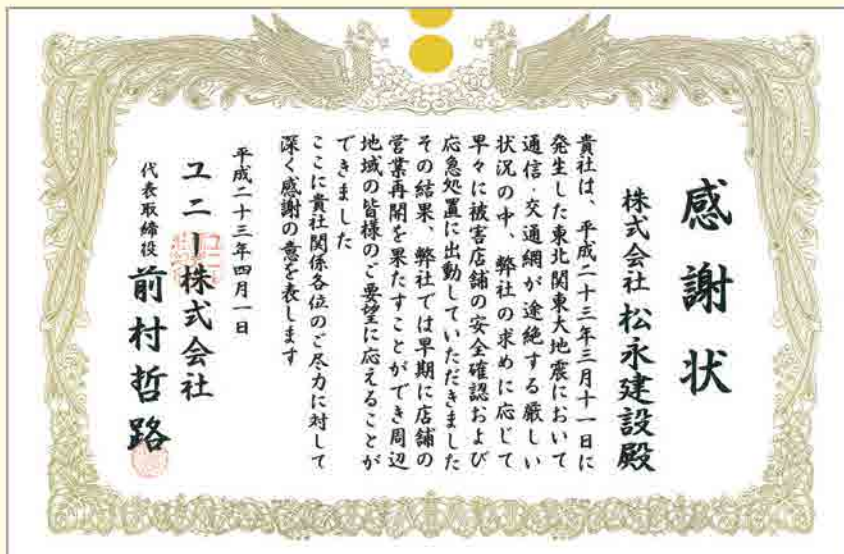 感謝状
株式会社 松永建設殿
貴社は、平成二十三年三月十一日に
発生した東北関東大地震において
通信・交通網が途絶する厳しい
状況の中、弊社の求めに応じて
早々に被害店舗の安全確認および
応急処置に出動していただきました
その結果、弊社では早期に店舗の
営業再開を果たすことができ周辺
地域の皆様のご要望に応えることが
できました
ここに貴社関係各位のご尽力に対して
深く感謝の意を表します
平成二十三年四月一日
ユニー株式会社
代表取締役 前村哲路